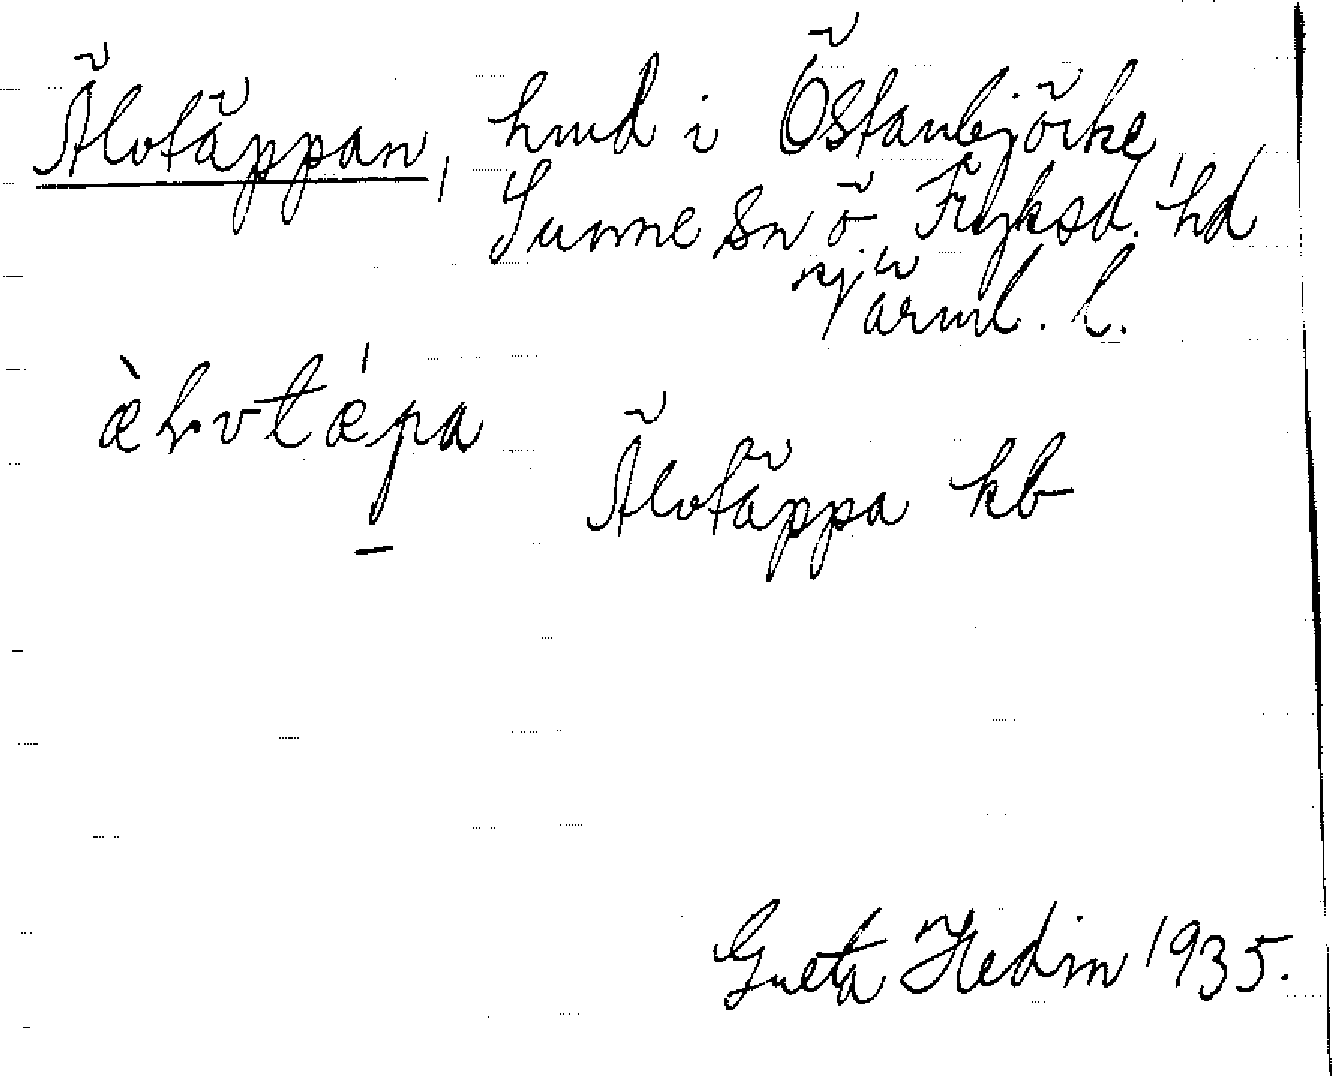 Älvtäppan, hmd i Östanbjörke
Sunne sn ö Fryksd. hd
Värml. l.
Älvtäppa kb
Greta Hedin 1935.